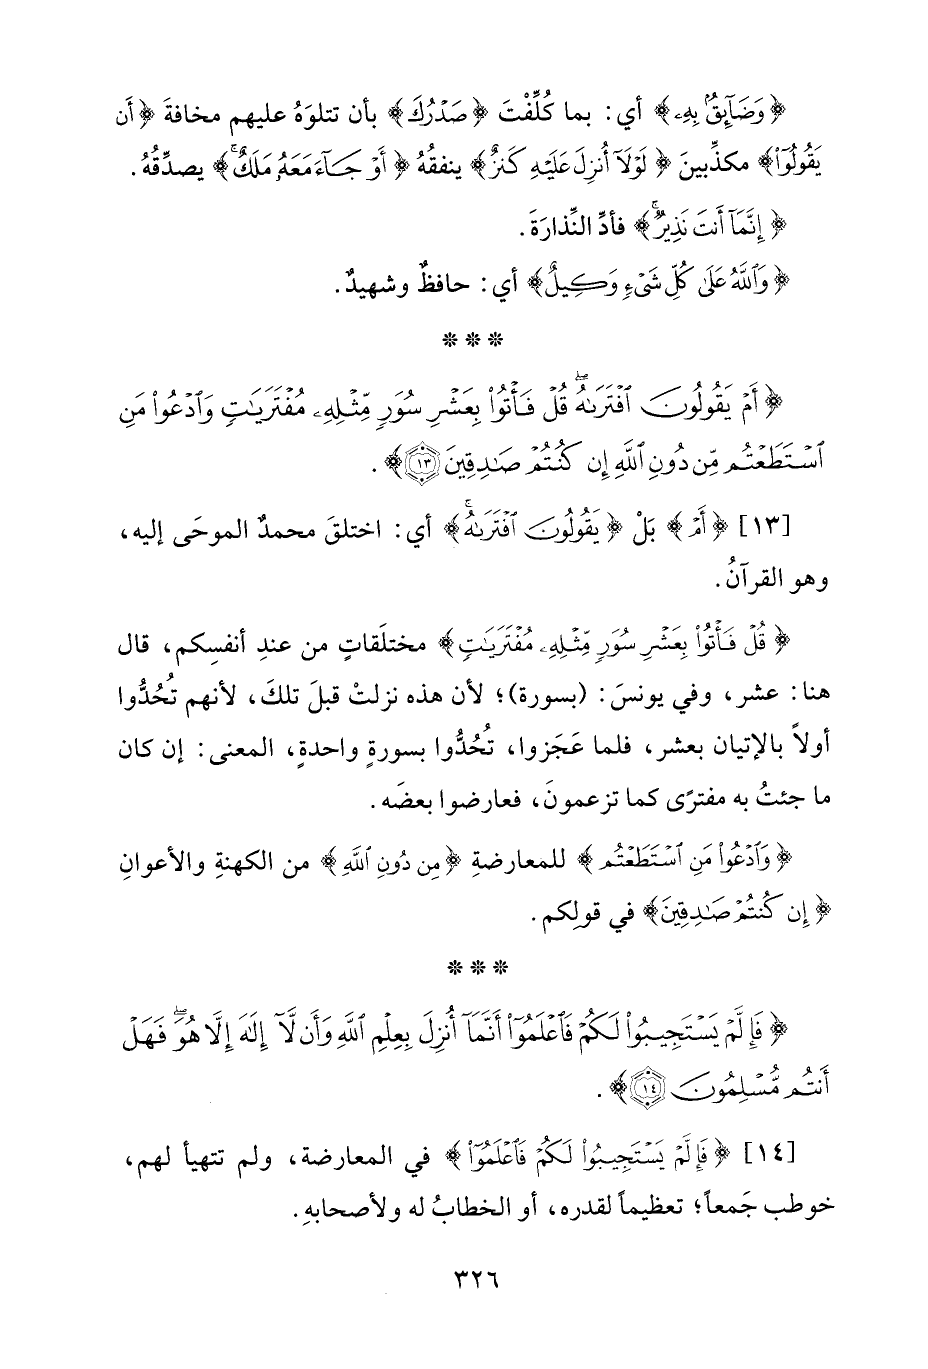 ﴿وَضَآئِقٌۢ بِهِۦ﴾ أي: بما كُلِّفْتَ ﴿صَدْرُكَ﴾ بأن تتلوَهُ عليهم مخافةَ ﴿أَن
يَقُولُوا۟﴾ مكذِّبينَ ﴿لَوْلَآ أُنزِلَ عَلَيْهِ كَنزٌ﴾ ينفقُهُ ﴿أَوْ جَآءَ مَعَهُۥ مَلَكٌ ۚ﴾ يصدِّقُهُ.
﴿إِنَّمَآ أَنتَ نَذِيرٌ ۚ﴾ فأدِّ النِّذارَةَ.
﴿وَٱللَّهُ عَلَىٰ كُلِّ شَىْءٍ وَكِيلٌ﴾ أي: حافظٌ وشهيدٌ.
* * *
﴿أَمْ يَقُولُونَ ٱفْتَرَىٰهُ ۖ قُلْ فَأْتُوا۟ بِعَشْرِ سُوَرٍ مِّثْلِهِۦ مُفْتَرَيَٰتٍ وَٱدْعُوا۟ مَنِ
ٱسْتَطَعْتُم مِّن دُونِ ٱللَّهِ إِن كُنتُمْ صَٰدِقِينَ ١٣﴾.
[١٣] ﴿أَمْ﴾ بَلْ ﴿يَقُولُونَ ٱفْتَرَىٰهُ ۚ﴾ أي: اختلقَ محمدٌ الموحَى إليه،
وهو القرآنُ.
﴿قُلْ فَأْتُوا۟ بِعَشْرِ سُوَرٍ مِّثْلِهِۦ مُفْتَرَيَٰتٍ﴾ مختلَقاتٍ من عندِ أنفسِكم، قال
هنا: عشر، وفي يونسَ: (بسورة)؛ لأن هذه نزلتْ قبلَ تلكَ، لأنهم تُحُدُّوا
أولاً بالإتيان بعشر، فلما عَجَزوا، تُحُدُّوا بسورةٍ واحدةٍ، المعنى: إن كان
ما جئتُ به مفترًى كما تزعمونَ، فعارضوا بعضَه.
﴿وَٱدْعُوا۟ مَنِ ٱسْتَطَعْتُم﴾ للمعارضةِ ﴿مِن دُونِ ٱللَّهِ﴾ من الكهنةِ والأعوانِ
﴿إِن كُنتُمْ صَٰدِقِينَ﴾ في قولِكم.
* * *
﴿فَإِلَّمْ يَسْتَجِيبُوا۟ لَكُمْ فَٱعْلَمُوٓا۟ أَنَّمَآ أُنزِلَ بِعِلْمِ ٱللَّهِ وَأَن لَّآ إِلَٰهَ إِلَّا هُوَ ۖ فَهَلْ
أَنتُم مُّسْلِمُونَ ١٤﴾.
[١٤] ﴿فَإِلَّمْ يَسْتَجِيبُوا۟ لَكُمْ فَٱعْلَمُوٓا۟﴾ في المعارضة، ولم تتهيأ لهم،
خوطب جَمعاً؛ تعظيماً لقدره، أو الخطابُ له ولأصحابهِ.
٣٢٦